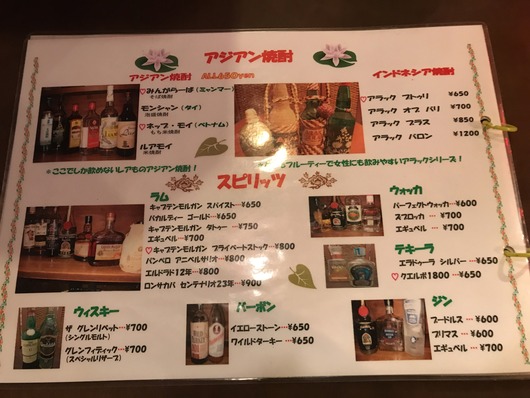 アジアン焼酎
アジアン焼酎 ALL650yen
♡みんがらーば(ミャンマー)
そば焼酎
モンシャン(タイ)
泡盛焼酎
♡ネップ・モイ(ベトナム)
もち米焼酎
ルアモイ
米焼酎
インドネシア焼酎
♡アラック ブトゥリ ¥650
アラック オブ バリ ¥700
アラック ブラス ¥850
アラック バロン ¥1200
*ここでしか飲めないレアものアジアン焼酎!
フルーティーで女性にも飲みやすいアラックシリーズ!
スピリッツ
ラム
キャプテンモルガン スパイスト…¥650
バカルディー ゴールド…¥650
キャプテンモルガン タトゥー …¥750
エギュベル…¥700
♡キャプテンモルガン プライベートストック…¥800
パンペロ アニベルサリオ…¥800
エルドラド12年…¥800
ロンサカパ センテナリオ23年…¥900
ウォッカ
パーフェクトウォッカ…¥600
ズブロッカ …¥600
エギュベル …¥700
テキーラ
エラドゥーラ シルバー …¥650
♡クエルボ1800 …¥650
ウィスキー
ザ グレンリベット…¥700
(シングルモルト)
グレンフィディック…¥700
(スペシャルリザーブ)
バーボン
イエローストーン…¥650
ワイルドターキー…¥650
ジン
ブードルス …¥600
プリマス …¥600
エギュベル …¥700